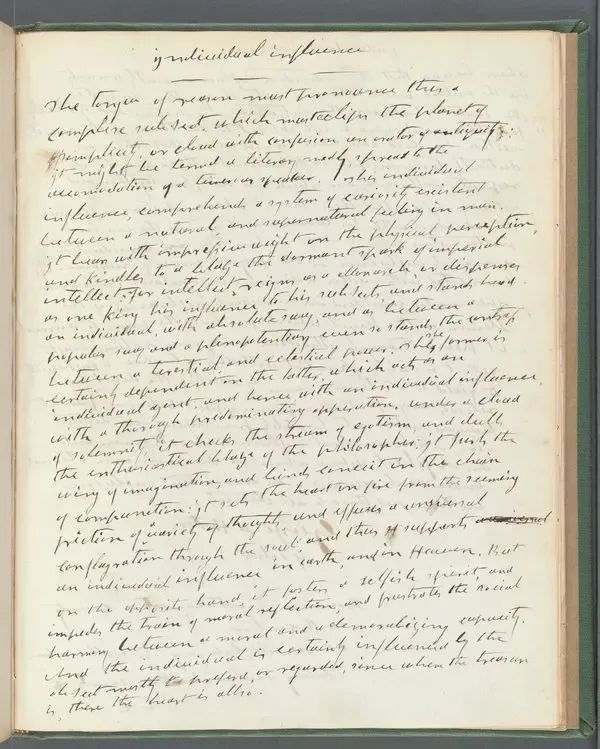 individual influence
The tongue of reason must pronounce this a
complise subsect, which masteclips the planet of
simplicit, or cloud with confusion an orator of antiquity:
it might be termd a literary spread to the
accomodation of a timerous speaker. This individual
influence, comprehends a system of curiosity existent
between a natural, and supernatural feeling in man.
it bears with impressive weight on the physical perception,
and kindles to a blaze the dormant spark of imperial
intellect. For intellect reigns as a Monarch, or dispenses
as one King his influence to his subsects, and stands based
on individual, with absolute sway, and as between a
popular sway and a plenepotentiary even so stands the contrast
between a terestial, and celestial power. The former is
certainly dependent on the latter, which acts as an
individual agent, and hence with an individual influence,
with a thorough predominating opperation, under a cloud
of solemnity it checks the stream of egotism, and dulls
the enthusiastical blaze of the philosopher; it furls the
wing of imagination, and binds conceit in the chain
of compunction: it sets the heart on fire from the seeming
friction of variety of thoughts and effuses a universal
conflagration through the soul; and thus it supports a universal
an individual influence in earth, and in Heaven. But
on the opposite hand, it fosters a selfish spirit, and
impedes the train of moral reflection, and frustrates the social
harmony between a moral and a demoralizing capacity.
And the individual is certainly influenced by the
obsect mostly to preferd, or regarded, since where the treasure
is, there the heart is allso.